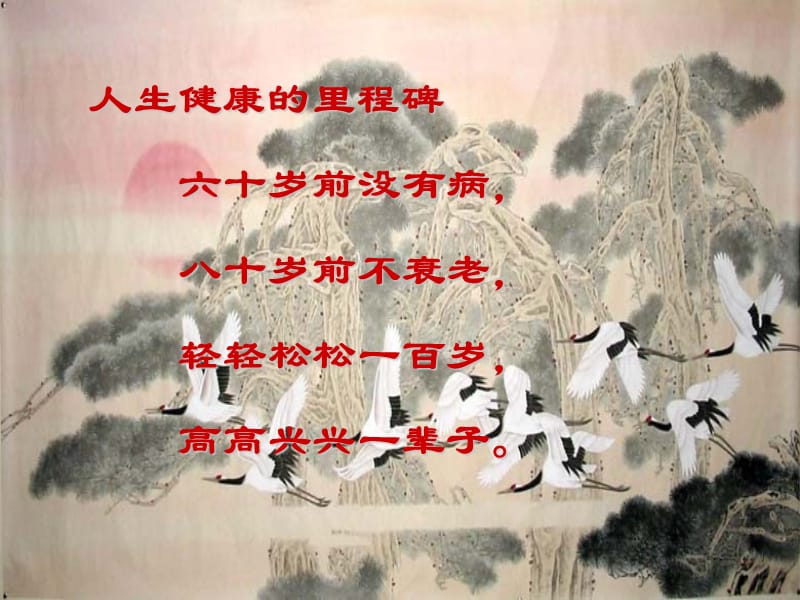 人生健康的里程碑
六十岁前没有病，
八十岁前不衰老，
轻轻松松一百岁，
高高兴兴一辈子。